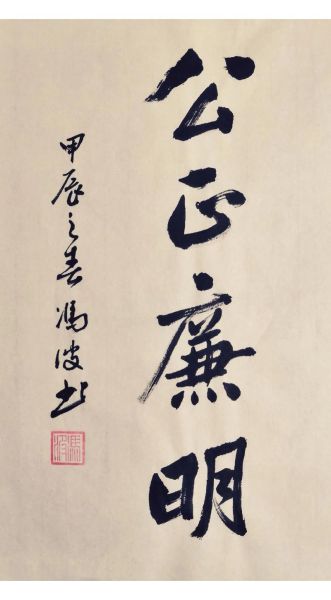 公正廉明
甲辰之春馮波书